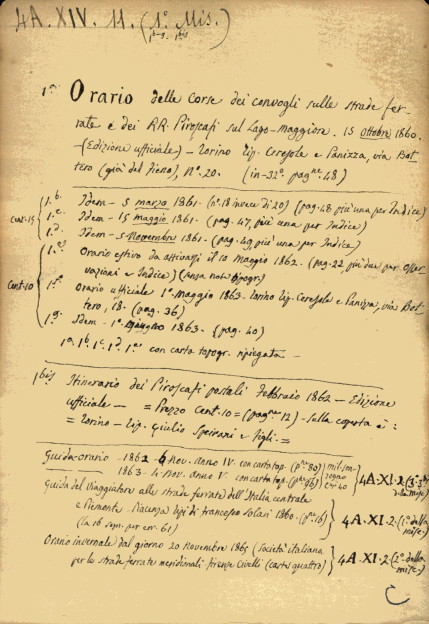 4A. XIV. 11. (1° Mis.)
1ª-g. 1bis
1ª Orario delle Corse dei convogli sulle strade fer-
rate e dei RR. Piroscafi sul Lago-maggiore. 15 Ottobre 1860.
(Edizione ufficiale) - Torino Tip. Ceresole e Panizza, via Bot-
tero (già del fieno), N.° 20. (in-32° pagne 48)
1.b. Idem - 5 marzo 1861. (n.° 18 invece di 20) (pag. 48 più una per Indice)
Cent. 15 1.c. Idem - 15 maggio 1861. (pag. 47, più una per Indice)
1.d. Idem - 5 Novembre 1861. (pag. 49, più una per Indice)
1.e. Orario estivo da attivarsi il 10 maggio 1862. (pag. 22, più due per Osser-
vazioni e Indice)
Cent. 10 1.f. Orario ufficiale 1° maggio 1863. Torino Tip. Ceresole e Panizza, via Bot-
tero, 18. (pag. 36)
1g. Idem - 1° 1863. (pag. 40)
1a, 1b, 1c, 1d, 1e con carta topogr. ripiegata -
1bis Itinerario dei Piroscafi postali Febbraio 1862 - Edizione
ufficiale - = Prezzo Cent. 10 = (pagne 12) - sulla coperta è:
= Torino - Tip. Giulio Speirani e figli. =
Guida-orario 1862 6 Nov. Anno IV. con carta top. (pne 80)
1863. 4 Nov. Anno V con carta top. (pne 96) 4A. XI. 2. (
Guida del viaggiatore alle strade ferrate dell'Italia centrale
e Piemonte. Piacenza tipi di Francesco Solari 1860. (pne 16) 4A. XI. 2. (1° della
(la 16 segn. per err. 61) misc.)
Orario invernale dal giorno 20 Novembre 1865 (Società italiana 4A. XI. 2. (2° della
per le strade ferrate meridionali. Firenze Civelli (carte quattro) misc.)
C